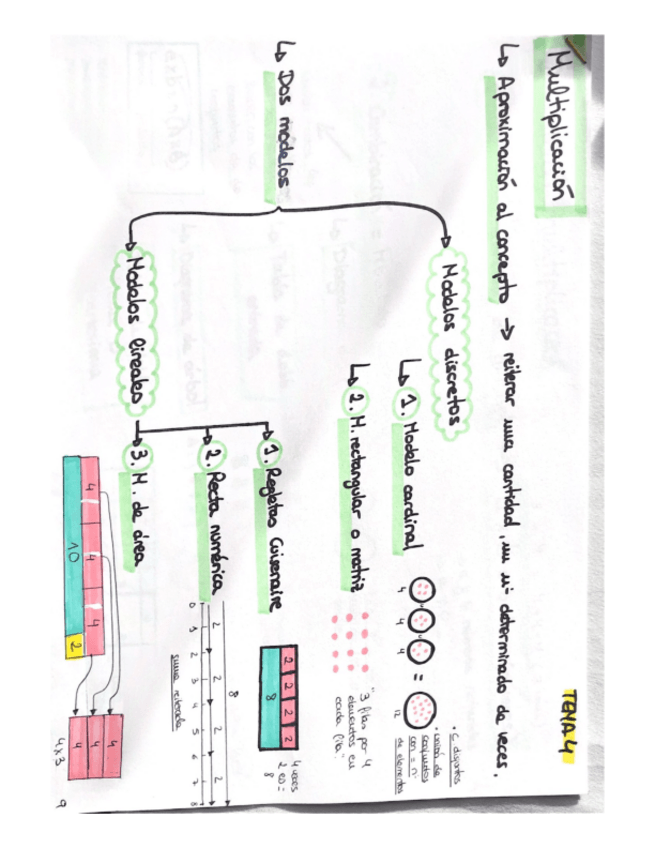 TEMA 4
Multiplicación
↳ Aproximación al concepto → reiterar una cantidad, un nº determinado de veces.
↳ Dos modelos
Modelos discretos
↳ 1. Modelo cardinal
4 4 4 = 12
· C. disjuntos
· unión de
conjuntos
con = nº
de elementos
↳ 2. M. rectangular o matriz
"3 filas por 4
elementos en
cada fila".
Modelos lineales
1. Regletas Cuisenaire
2 2 2 2
8
4 veces
2 es =
8
2. Recta numérica
8
2 2 2 2
0 1 2 3 4 5 6 7 8
suma reiterada
3. M. de área
4 4 4
10 2
4
4
4
4x3
9